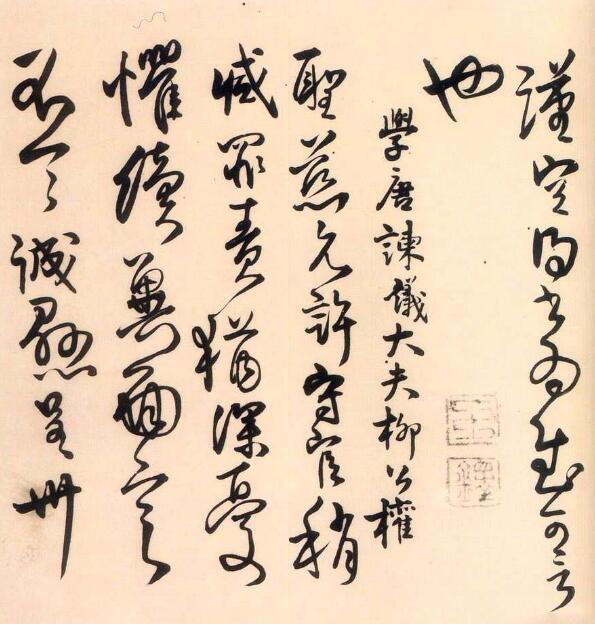 謹空書為可言
也
學唐諫議大夫柳公權
聖慈允許守官稍
減罪責猶深憂
懼續冀面言
不一一誠懸呈卅
王鐸